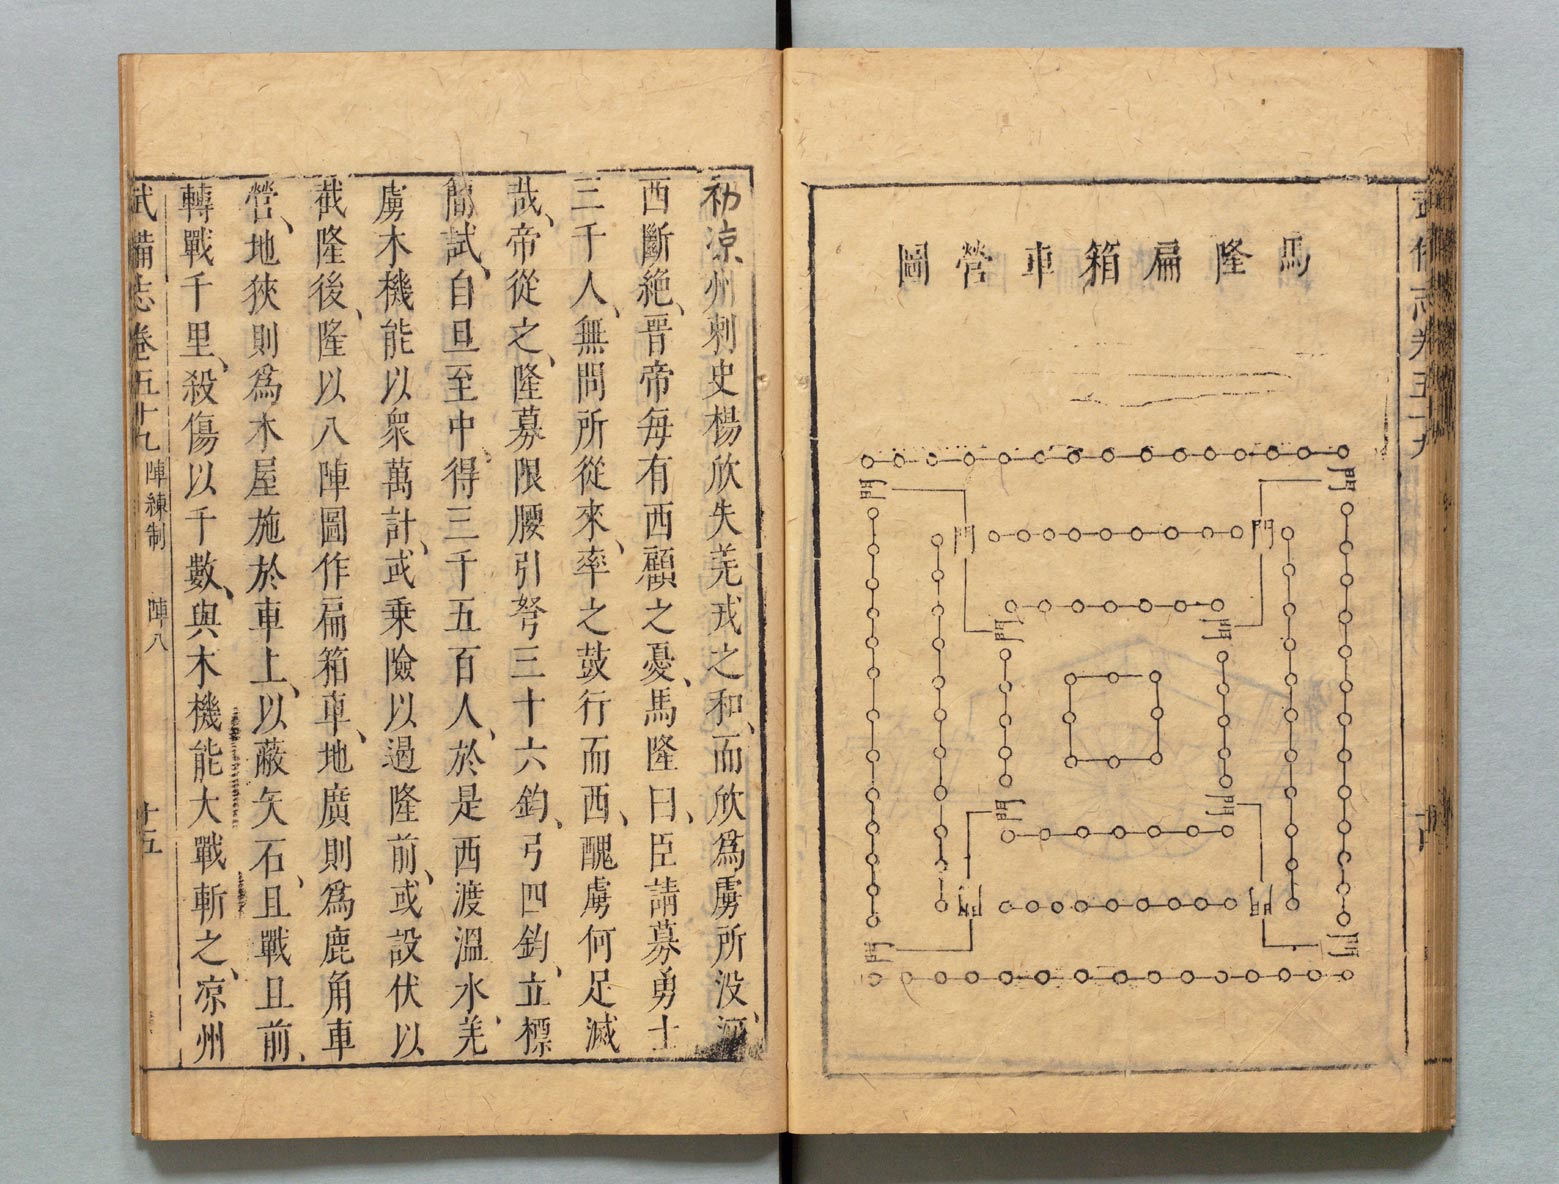 武備志卷五十九
馬隆扁箱車營圖
門
門
門
門
門
門
門
門
門
門
門
門
初涼州刺史楊欣失羌戎之和、而欣爲虜所没、河
西斷絶、晉帝每有西顧之憂、馬隆曰、臣請募勇士
三千人、無問所從來、率之鼓行而西、醜虜何足滅
哉、帝從之、隆募限腰引弩三十六鈞、弓四鈞、立標
簡試、自旦至中、得三千五百人、於是西渡溫水、羌
虜木機能以衆萬計、或乗險以過隆前、或設伏以
截隆後、隆以八陣圖作扁箱車、地廣則爲鹿角車
營、地狹則爲木屋施於車上、以蔽矢石、且戰且前、
轉戰千里、殺傷以千數、與木機能大戰斬之、凉州
武備志卷五十九 陣練制 陣八 十五